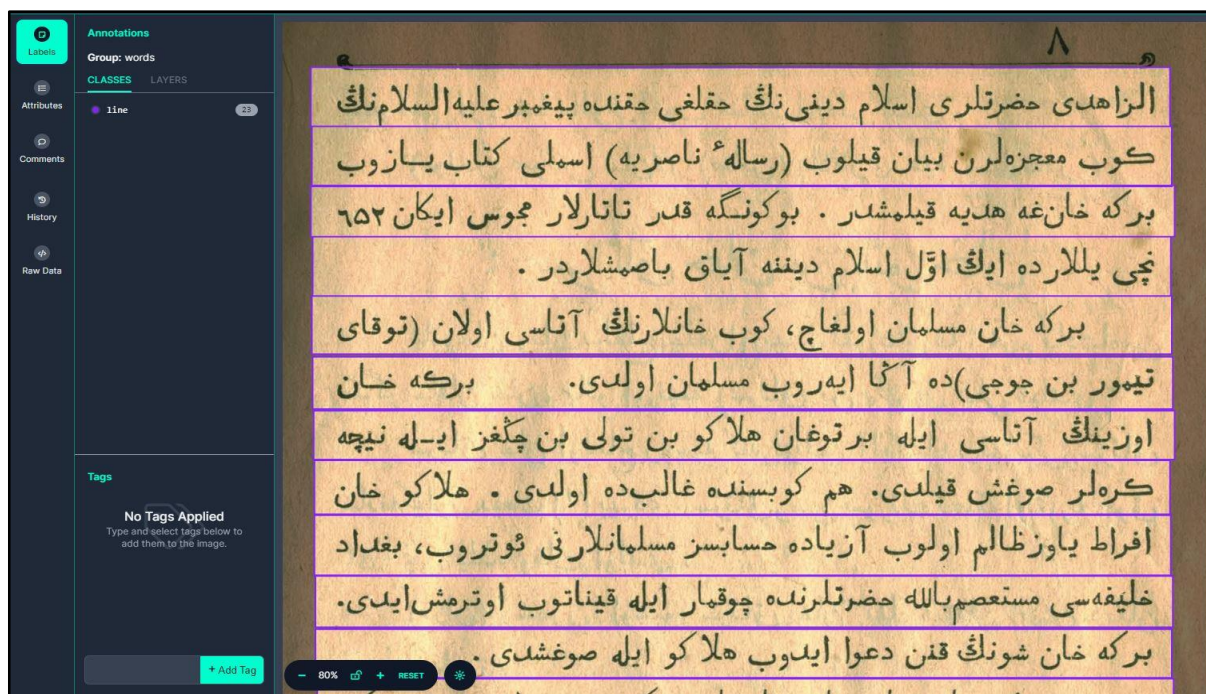 Labels
Attributes
Comments
History
Raw Data
Annotations
Group: words
CLASSES LAYERS
line 23
Tags
No Tags Applied
Type and select tags below to
add them to the image.
+ Add Tag
− 80% + RESET
٨
الزاهدى حضرتلرى اسلام دينى‌نڭ حقلغى حقنده پيغمبر عليه‌السلام‌نڭ
كوب معجزه‌لرن بيان قيلوب (رساله‌ٔ ناصريه) اسملى كتاب يــازوب
بركه خان‌غه هديه قيلمشدر . بوكونـگه قدر تاتارلار مجوس ايكان ٦٥٢
نچى يللارده ايڭ اوَّل اسلام ديننه آياق باصمشلاردر .
بركه خان مسلمان اولغاچ، كوب خانلارنڭ آتاسى اولان (توقاى
تيمور بن جوجى)ده آڭا ايه‌روب مسلمان اولدى. بركه خــان
اوزينڭ آتاسى ايله برتوغان هلاكو بن تولى بن چڭغز ايــله نيچه
كره‌لر صوغش قيلدى. هم كوبسنده غالب‌ده اولدى . هلاكو خان
افراط ياوز ظالم اولوب آزياده حسابسز مسلمانلارنى ئوتروب، بغداد
خليفه‌سى مستعصم‌بالله حضرتلرنده چوقمار ايله قيناتوب اوترمش‌ايدى.
بركه خان شونڭ قنن دعوا ايدوب هلاكو ايله صوغشدى .